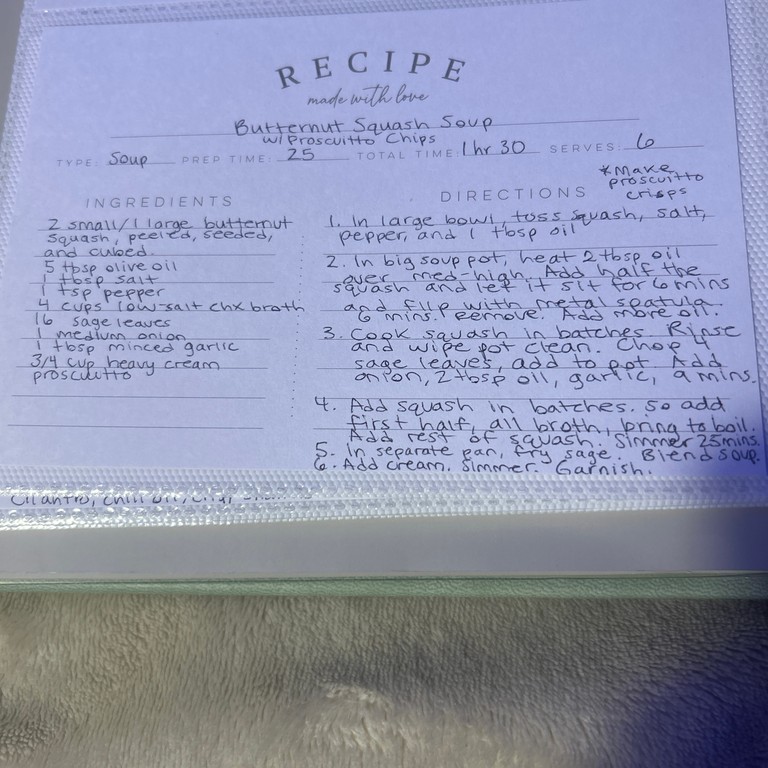 RECIPE
made with love
Butternut Squash Soup
w/ Proscuitto Chips
TYPE: Soup PREP TIME: 25 TOTAL TIME: 1 hr 30 SERVES: 6
*Make
proscuitto
crisps
INGREDIENTS
2 small/1 large butternut
squash, peeled, seeded,
and cubed.
5 tbsp olive oil
1 tbsp salt
1 tsp pepper
4 cups low-salt chx broth
16 sage leaves
1 medium onion
1 tbsp minced garlic
3/4 cup heavy cream
proscuitto
DIRECTIONS
1. In large bowl, toss squash, salt,
pepper, and 1 tbsp oil
2. In big soup pot, heat 2 tbsp oil
over med-high. Add half the
squash and let it sit for 6 mins
and flip with metal spatula
6 mins. Remove. Add more oil.
3. Cook squash in batches. Rinse
and wipe pot clean. Chop 4
sage leaves, add to pot. Add
onion, 2 tbsp oil, garlic, 9 mins.
4. Add squash in batches. So add
first half, all broth, bring to boil.
Add rest of squash. Simmer 25 mins.
5. In separate pan, fry sage. Blend soup.
6. Add cream. Simmer. Garnish.
Cilantro, chili oil,